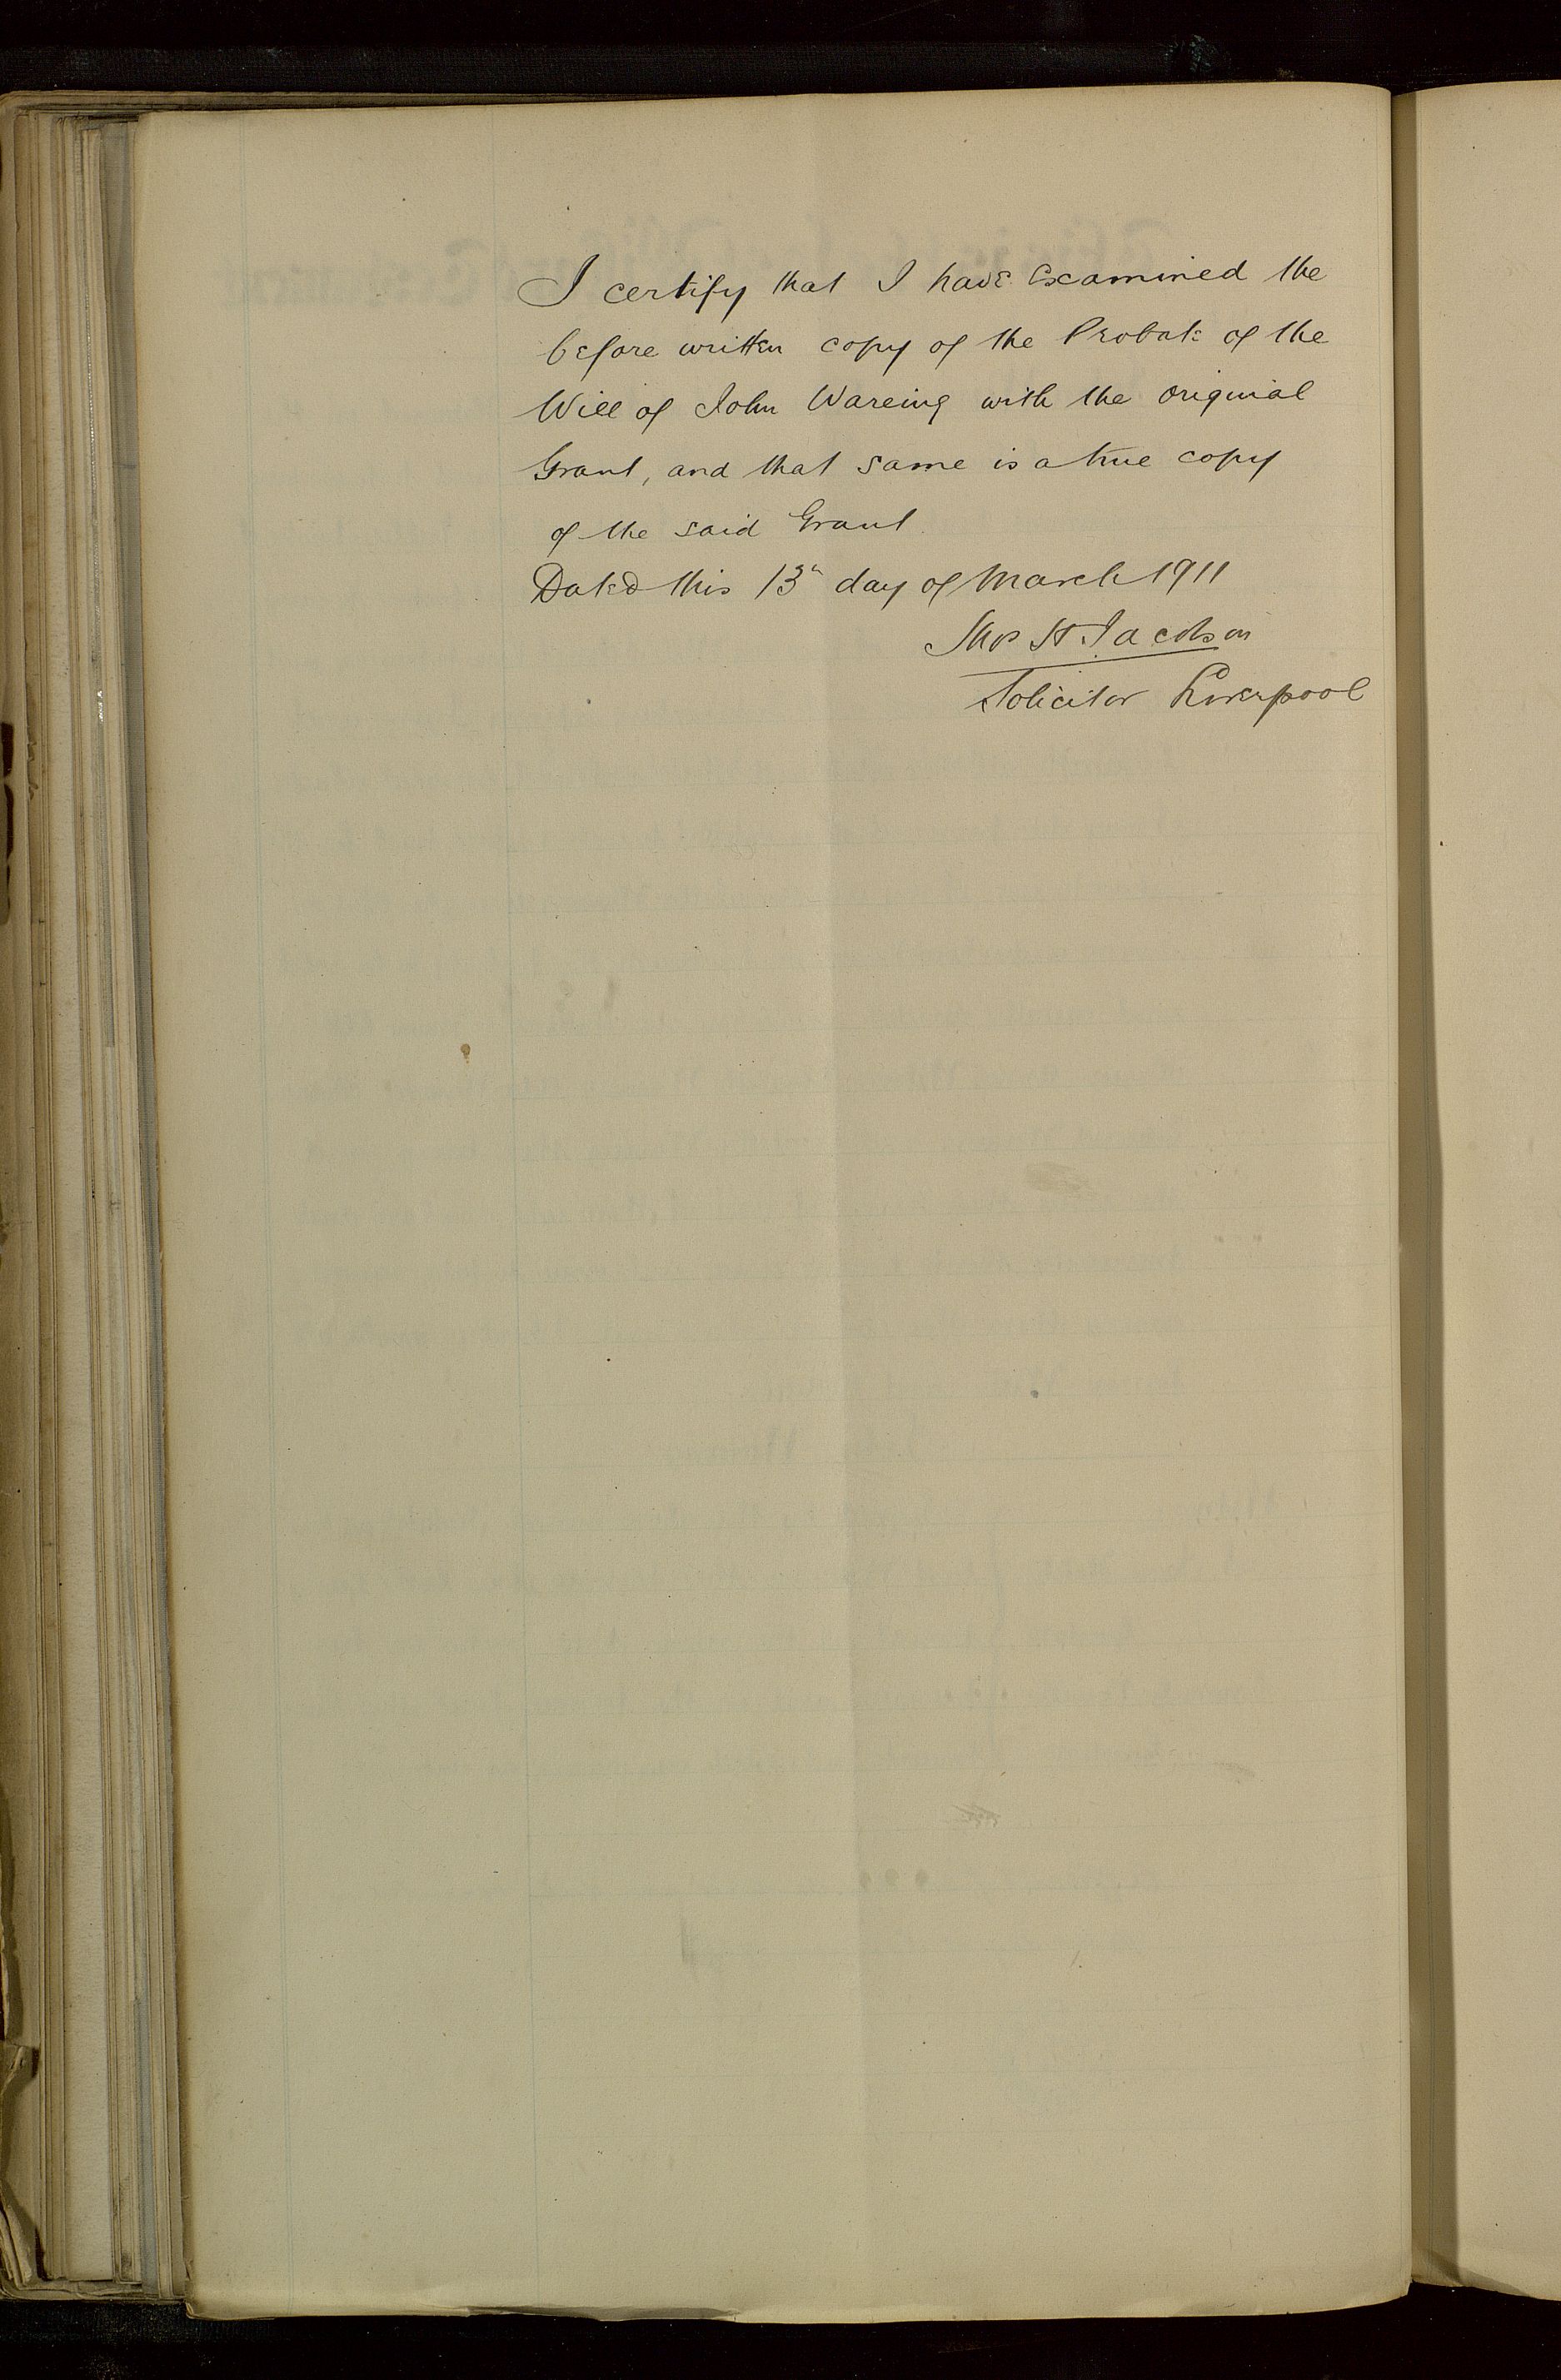 I certify that I have Examined the
before written copy of the Probate of the
Will of John Wareing with the original
Grant, and that same is a true copy
of the said Grant.
Dated this 13th day of March 1911
Thos H Jacobson
Solicitor Liverpool